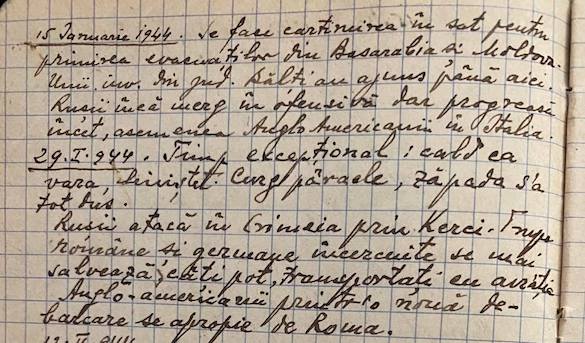 15 Ianuarie 1944. Se face cartiruirea în sat pentru
primirea evacuaților din Basarabia si Moldova.
Unii inv. din jud. Bălti au ajuns până aici.
Rusii încă merg în ofensivă dar progresii
încet, asemenea Anglo Americanii în Italia.
29.I.944. Timp excepțional: cald ca
vara, liniștit. Curg pâraele, zăpada s'a
tot dus.
Rusii atacă în Crimeia prin Kerci. Trupe
române si germane încercuite se mai
salvează câti pot, transportati cu aviația
Anglo-americanii printr'o nouă de-
barcare se apropie de Roma.